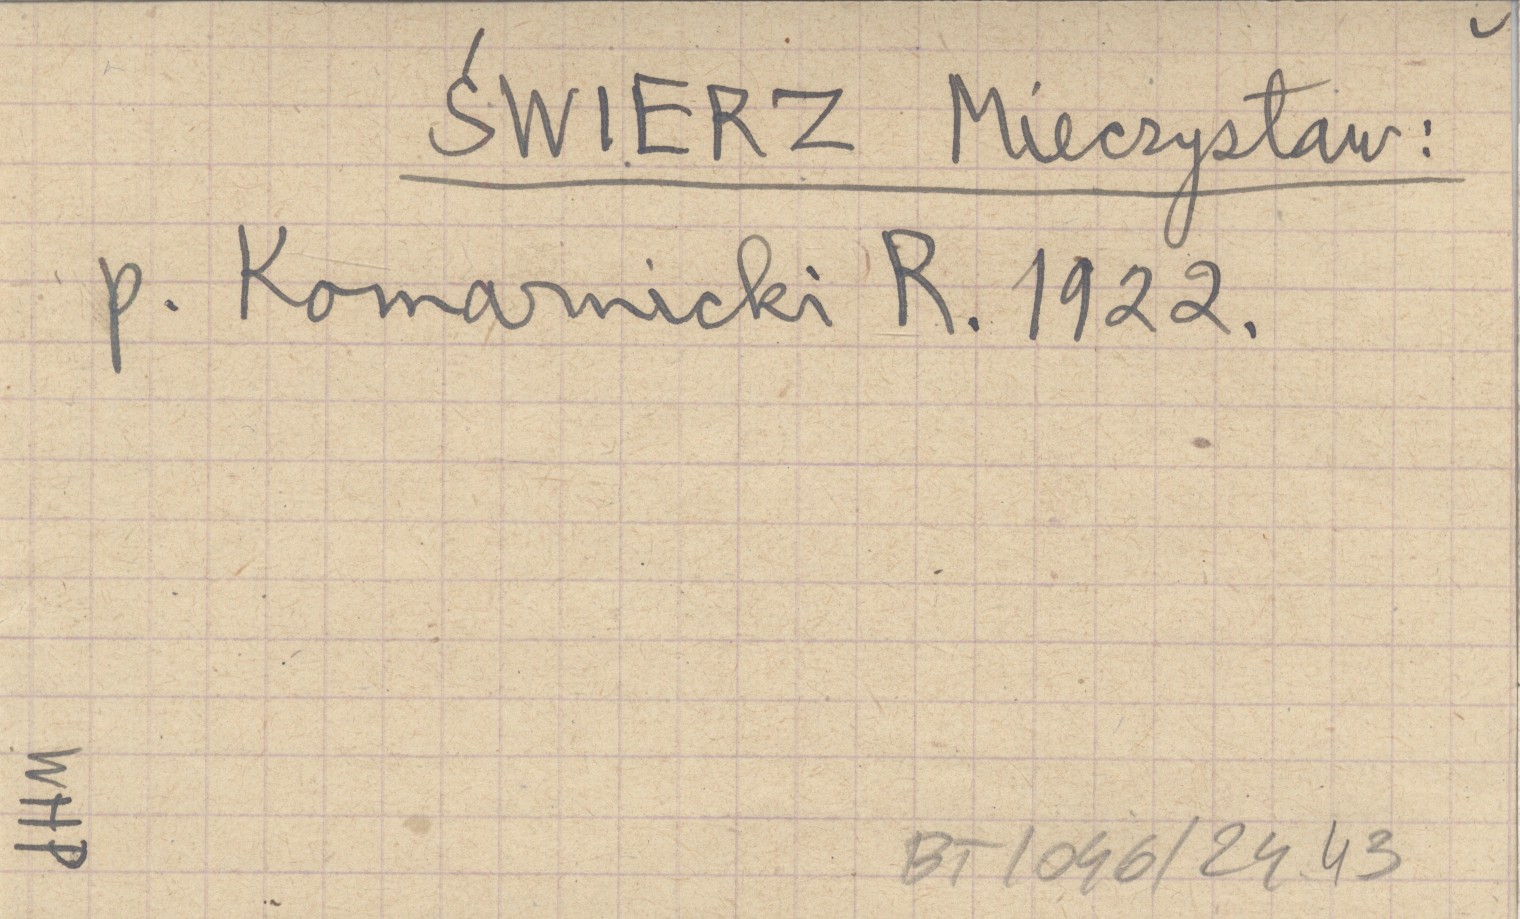 ŚWIERZ Mieczysław:
p. Komarnicki R. 1922.
WHP
BT/046/24.43